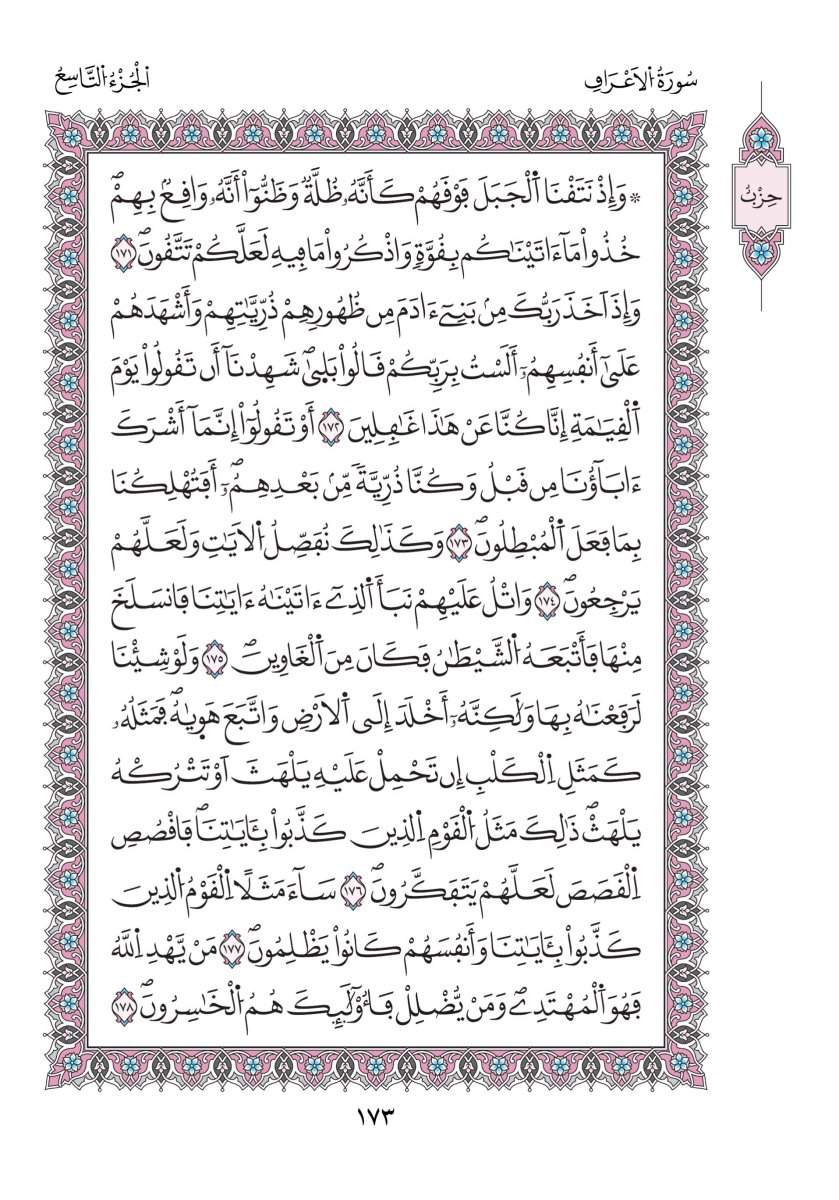 سُورَةُ الْأَعْرَافِ
الْجُزْءُ التَّاسِعُ
حِزْبٌ
۞ وَإِذْ نَتَقْنَا اَ۬لْجَبَلَ فَوْقَهُمْ كَأَنَّهُۥ ظُلَّةٞ وَظَنُّوٓاْ أَنَّهُۥ وَاقِعُۢ بِهِمْۖ
خُذُواْ مَآ ءَاتَيْنَٰكُم بِقُوَّةٖ وَاذْكُرُواْ مَا فِيهِ لَعَلَّكُمْ تَتَّقُونَۖ ١٧١
وَإِذَ اَخَذَ رَبُّكَ مِنۢ بَنِےٓ ءَادَمَ مِن ظُهُورِهِمْ ذُرِّيَّٰتِهِمْ وَأَشْهَدَهُمْ
عَلَىٰٓ أَنفُسِهِمُۥٓ أَلَسْتُ بِرَبِّكُمْ قَالُواْ بَلَىٰۖ شَهِدْنَآ أَن تَقُولُواْ يَوْمَ
اَ۬لْقِيَٰمَةِ إِنَّا كُنَّا عَنْ هَٰذَا غَٰفِلِينَ ١٧٢ أَوْ تَقُولُوٓاْ إِنَّمَآ أَشْرَكَ
ءَابَآؤُنَا مِن قَبْلُ وَكُنَّا ذُرِّيَّةٗ مِّنۢ بَعْدِهِمُۥٓۖ أَفَتُهْلِكُنَا
بِمَا فَعَلَ اَ۬لْمُبْطِلُونَۖ ١٧٣ وَكَذَٰلِكَ نُفَصِّلُ اُ۬لَايَٰتِ وَلَعَلَّهُمْ
يَرْجِعُونَۖ ١٧٤ وَاتْلُ عَلَيْهِمْ نَبَأَ اَ۬لذِےٓ ءَاتَيْنَٰهُ ءَايَٰتِنَا فَانسَلَخَ
مِنْهَا فَأَتْبَعَهُ اُ۬لشَّيْطَٰنُ فَكَانَ مِنَ اَ۬لْغَاوِينَۖ ١٧٥ وَلَوْ شِئْنَا
لَرَفَعْنَٰهُ بِهَا وَلَٰكِنَّهُۥٓ أَخْلَدَ إِلَى اَ۬لَارْضِ وَاتَّبَعَ هَوٜىٰهُۖ فَمَثَلُهُۥ
كَمَثَلِ اِ۬لْكَلْبِ إِن تَحْمِلْ عَلَيْهِ يَلْهَثَ اَوْ تَتْرُكْهُ
يَلْهَثۖ ذَّٰلِكَ مَثَلُ اُ۬لْقَوْمِ اِ۬لذِينَ كَذَّبُواْ بِـَٔايَٰتِنَاۖ فَاقْصُصِ
اِ۬لْقَصَصَ لَعَلَّهُمْ يَتَفَكَّرُونَۖ ١٧٦ سَآءَ مَثَلًا اِ۬لْقَوْمُ اُ۬لذِينَ
كَذَّبُواْ بِـَٔايَٰتِنَا وَأَنفُسَهُمْ كَانُواْ يَظْلِمُونَۖ ١٧٧ مَنْ يَّهْدِ اِ۬للَّهُ
فَهُوَ اَ۬لْمُهْتَدِےۖ وَمَنْ يُّضْلِلْ فَأُوْلَٰٓئِكَ هُمُ اُ۬لْخَٰسِرُونَۖ ١٧٨
١٧٣